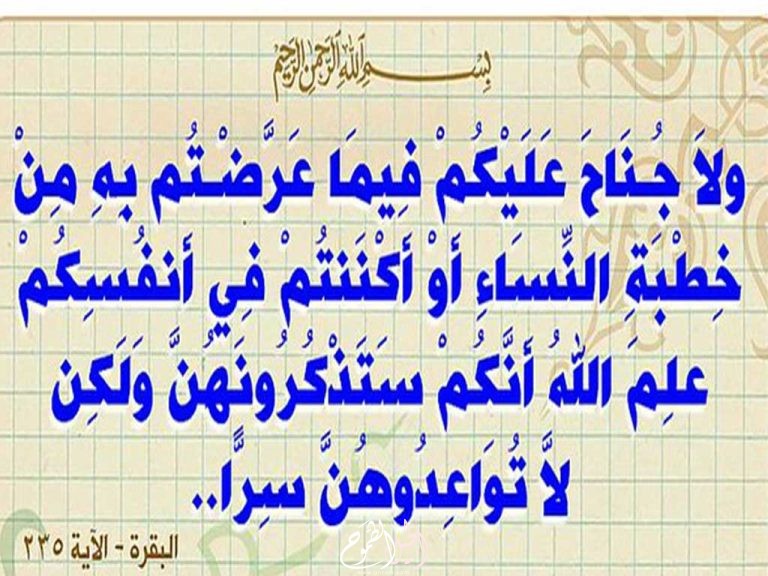 بِسْمِ اللهِ الرَّحْمٰنِ الرَّحِيْمِ
ولاَ جُنَاحَ عَلَيْكُمْ فِيمَا عَرَّضْتُم بِهِ مِنْ
خِطْبَةِ النِّسَاءِ أَوْ أَكْنَنتُمْ فِي أَنفُسِكُمْ
علِمَ اللهُ أَنَّكُمْ سَتَذْكُرُونَهُنَّ وَلَكِن
لاَّ تُوَاعِدُوهُنَّ سِرًّا..
البقرة - الآية ٢٣٥